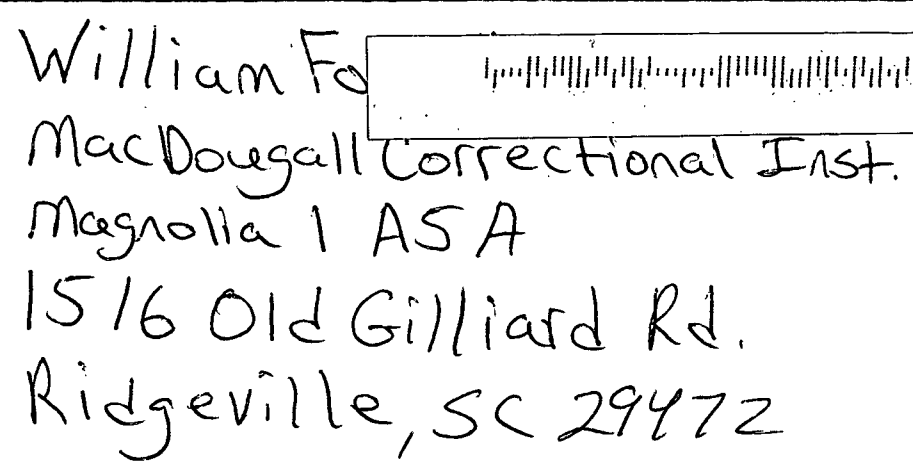 William Fo
MacDougall Correctional Inst.
Magnolia 1 A5 A
1516 Old Gilliard Rd.
Ridgeville, SC 29472